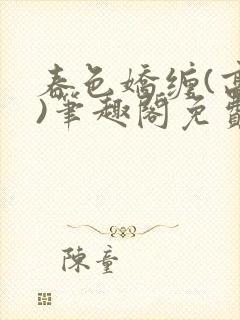 春色嬌纏(高
)筆趣閣免費
陳童